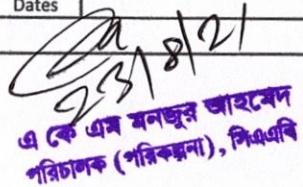 Dates
23/8/21
এ কে এম মনজুর আহমেদ
পরিচালক (পরিকল্পনা), সিএএবি